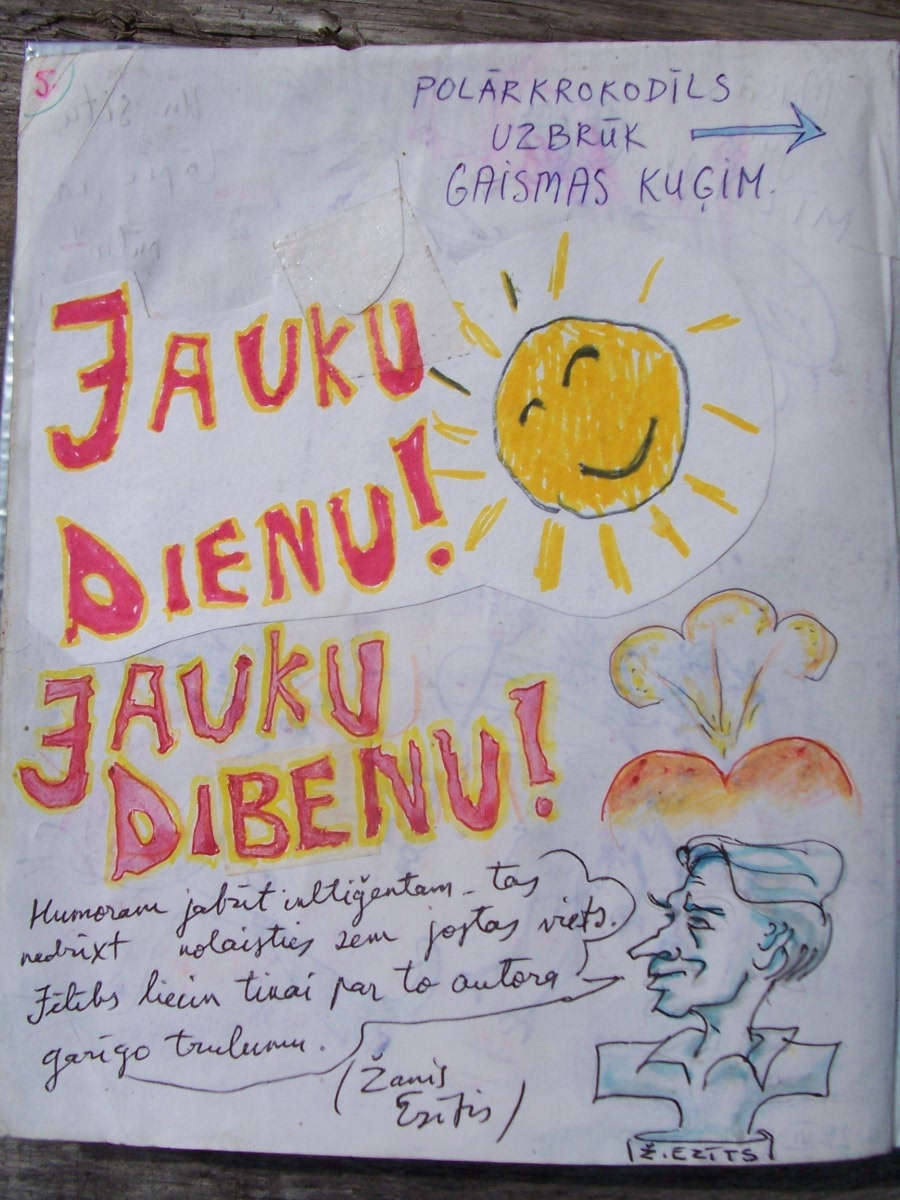 5.
POLĀRKROKODĪLS
UZBRŪK
GAISMAS KUĢIM.
JAUKU
DIENU!
JAUKU
DIBENU!
Humoram jabūt intliģentam - tas
nedrīxt nolaisties zem jostas viets.
Jēlībs liecin tikai par to autora
garīgo trulumu.
(Žanis
Ezītis)
Ž.EZĪTS